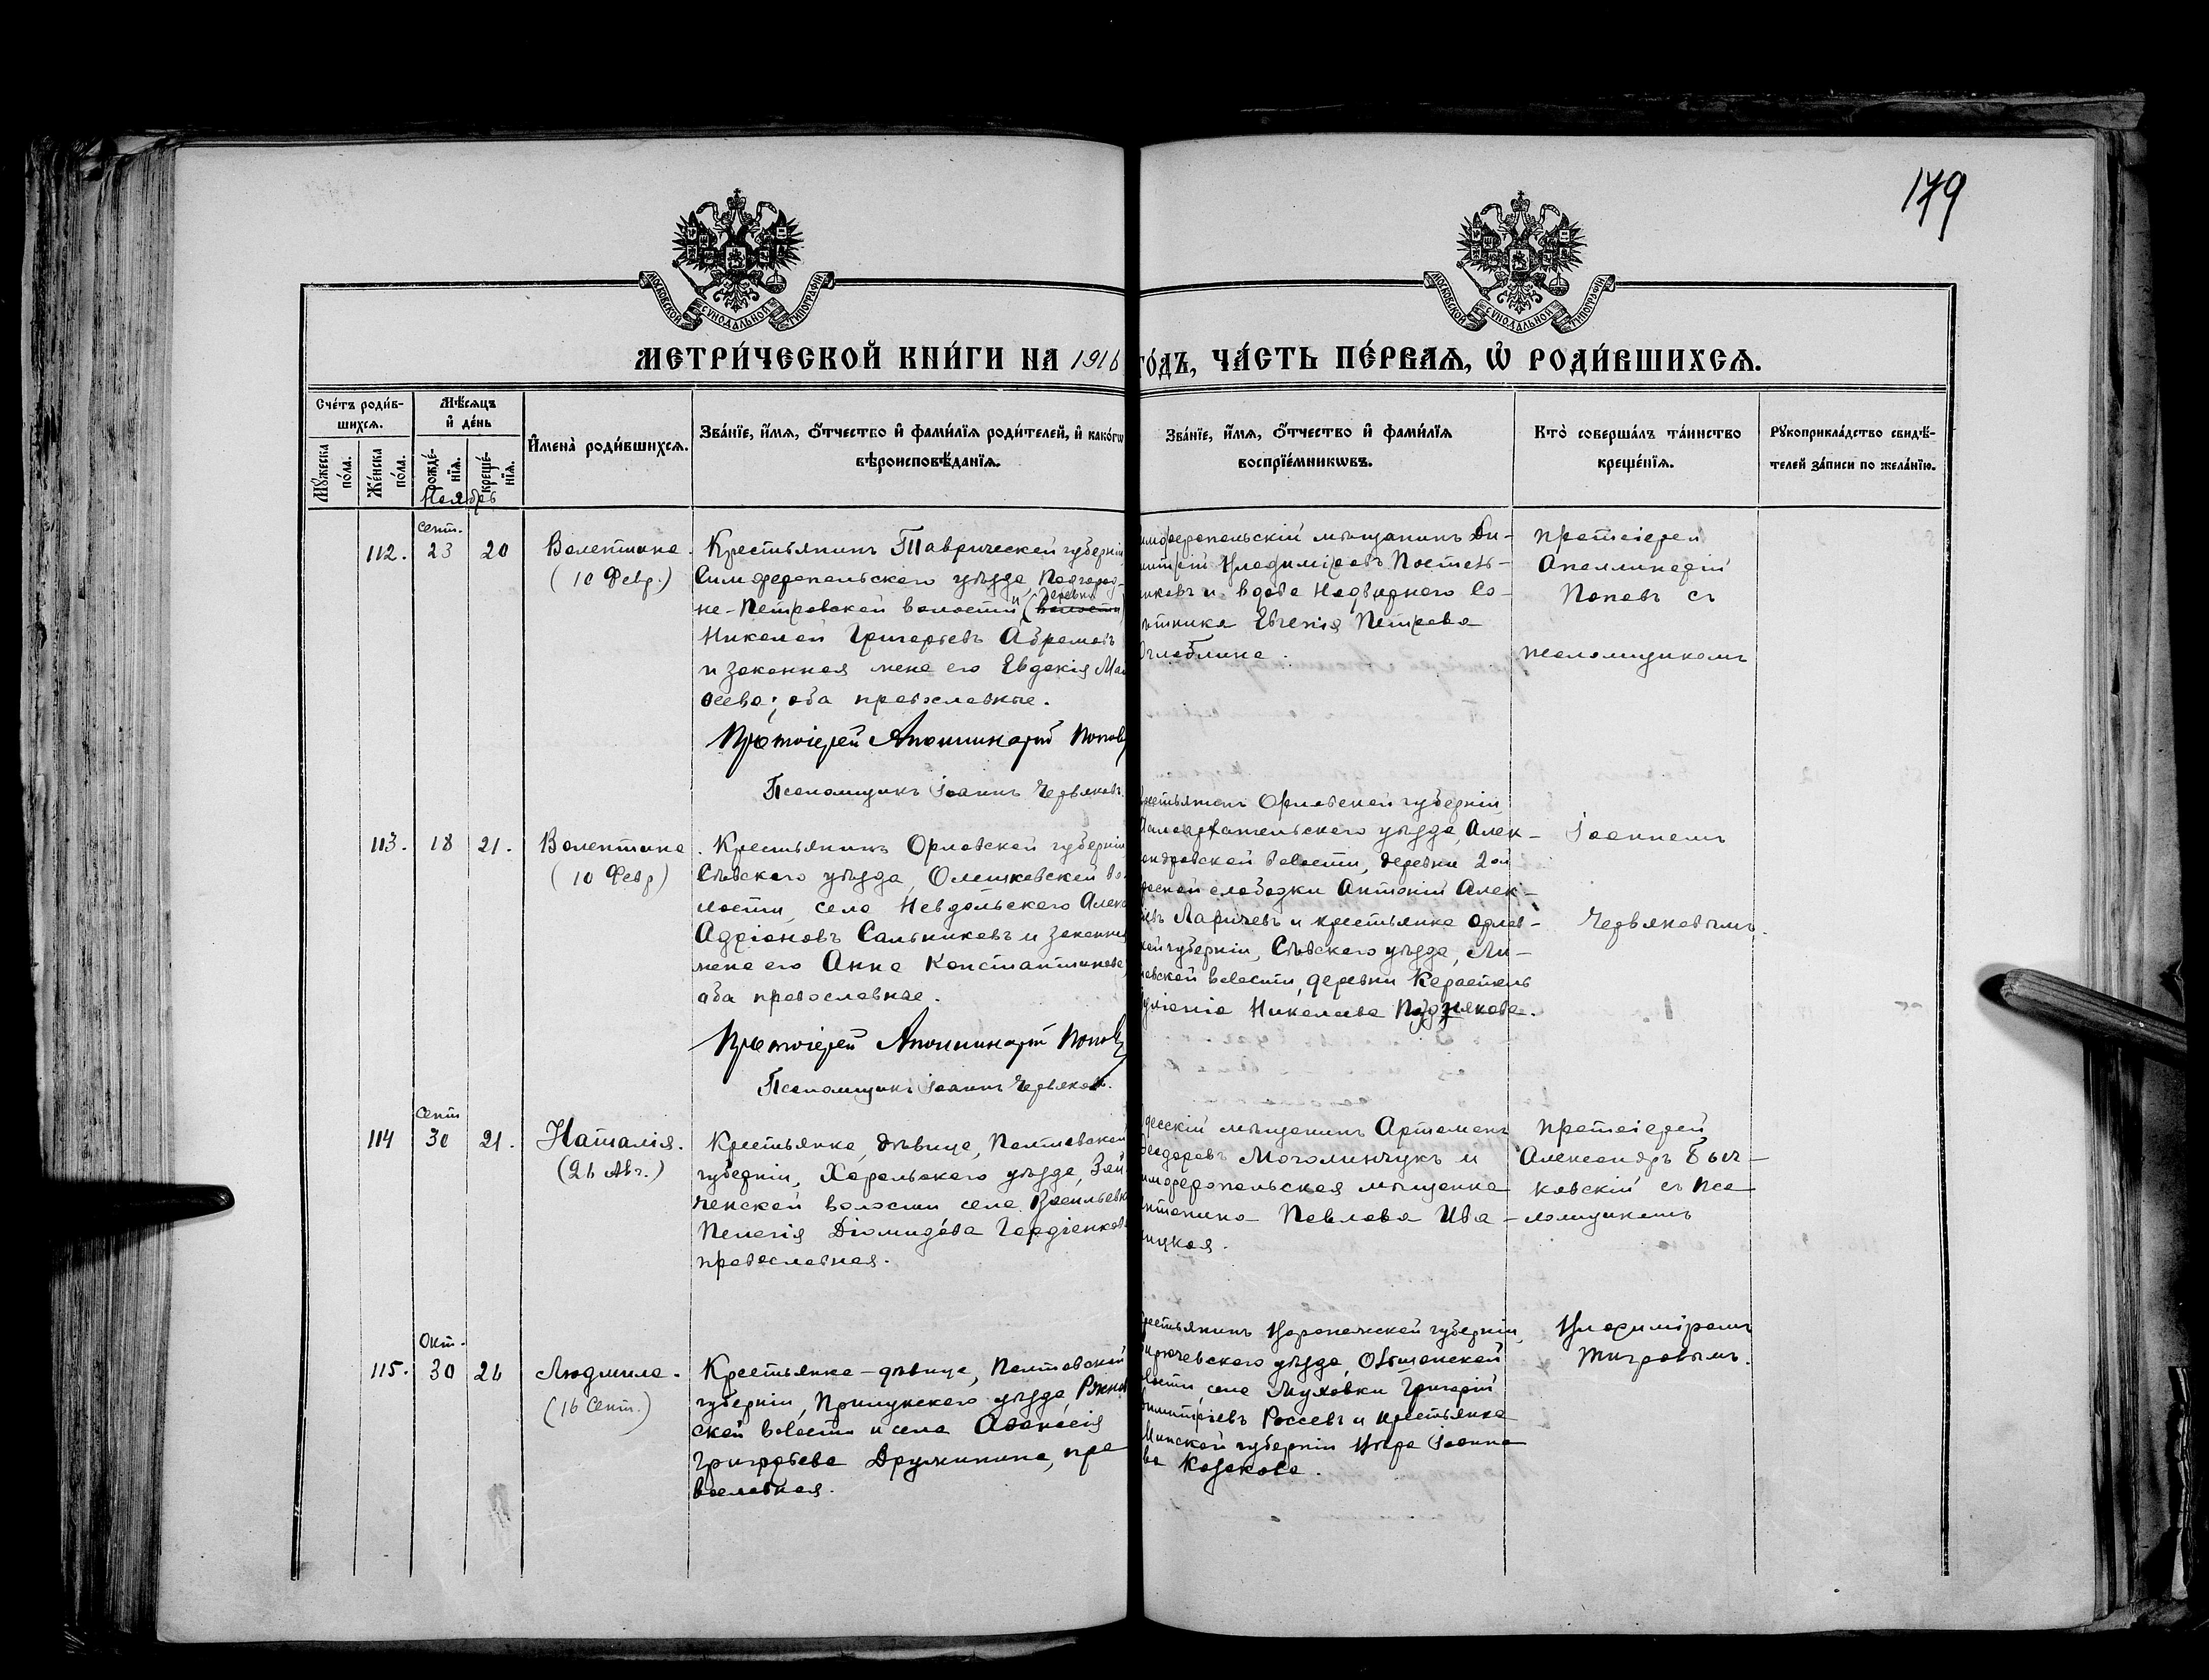 179
МОСКОВСКОЙ СѴНОДАЛЬНОЙ ТИПОГРАФІИ
МОСКОВСКОЙ СѴНОДАЛЬНОЙ ТИПОГРАФІИ
МЕТРИ́ЧЕСКОЙ КНИ́ГИ НА 1916
ГО́ДЪ, ЧА́СТЬ ПЕ́РВАѦ, Ѡ҆ РОДИ́ВШИХСѦ.
Сче́тъ роди́в-
шихсѧ.
Мѣ́сѧцъ
и҆ де́нь
Мꙋ́жеска
по́ла.
Же́нска
по́ла.
рожде́-
нїѧ.
креще́-
нїѧ.
И҆мена̀ роди́вшихсѧ.
Зва́нїе, и҆́мѧ, ѻ҆́тчество и҆ фами́лїѧ роди́телей, и҆ како́гѡ
вѣроисповѣ́данїѧ.
Зва́нїе, и҆́мѧ, ѻ҆́тчество и҆ фами́лїѧ
воспрїе́мникѡвъ.
Кто̀ соверша́лъ та́инство
креще́нїѧ.
Рꙋкоприкла́дство свидѣ́-
телей за́писи по жела́нїю.
Ноябрь
сент.
112. 23 20
Валентина.
(10 Февр.)
Крестьянинъ Таврической губерніи
Симферопольскаго уѣзда, Подгород-
не-Петровской волости и деревни (волости)
Николай Григорьевъ Абрамовъ
и законная жена его Евдокія Ма
ѳеева; оба православные.
Протоіерей Аполлинарій Поповъ
Псаломщикъ Іоаннъ Червяковъ.
имферопольскій мѣщанинъ Ди-
митрій Владиміровъ Постель-
никовъ и вдова Надворнаго Со-
вѣтника Евгенія Петрова
Оглоблина.
протоіерей
Аполлинарій
Поповъ съ
псаломщикомъ
113. 18 21.
Валентина.
(10 Февр)
Крестьянинъ Орловской губерніи
Сѣвскаго уѣзда, Олешковской во-
лости, села Невдольскаго Алекс
Адріановъ Сальниковъ и законная
жена его Анна Константинова,
оба православные.
Протоіерей Аполлинарій Поповъ
Псаломщикъ Іоаннъ Червяковъ.
крестьянинъ Орловской губерніи
Малоархангельскаго уѣзда, Алек-
сандровской волости, деревни 2ой
слободки Антоній Алек-
Ларичевъ и крестьянка Орлов-
ской губерніи, Сѣвскаго уѣзда, Ли-
волости, деревни
Николаева Позднякова.
Іоанномъ
Червяковымъ.
Сент
114 30 21.
Наталія.
(26 Авг.)
Крестьянка, дѣвица, Полтавской
губерніи, Хорольскаго уѣзда, Зай-
ченской волости села Васильевки
Пелагія Діомидова Гордіенкова
православная.
Одесскій мѣщанинъ Артамонъ
Ѳеодоровъ Моголинчукъ и
имферопольская мѣщанка
Антонина Павлова Ива-
ницкая.
протоіерей
Александръ Быч-
ковскій съ пса-
ломщикомъ
Окт.
115. 30 26
Людмила.
(16 Сент.)
Крестьянка-дѣвица, Полтавской
губерніи, Прилукскаго уѣзда,
ской волости и села Аѳанасія
Григорьева Дружинина, пра-
вославная.
крестьянинъ Воронежской губерніи,
Бирючевскаго уѣзда, Ольшанской
волости, села Мухоѵки Григорій
Димитріевъ Россевъ и крестьянка
Минской губерніи Вѣра Іоанно-
ва Козакова.
Владиміромъ
Тигровымъ.